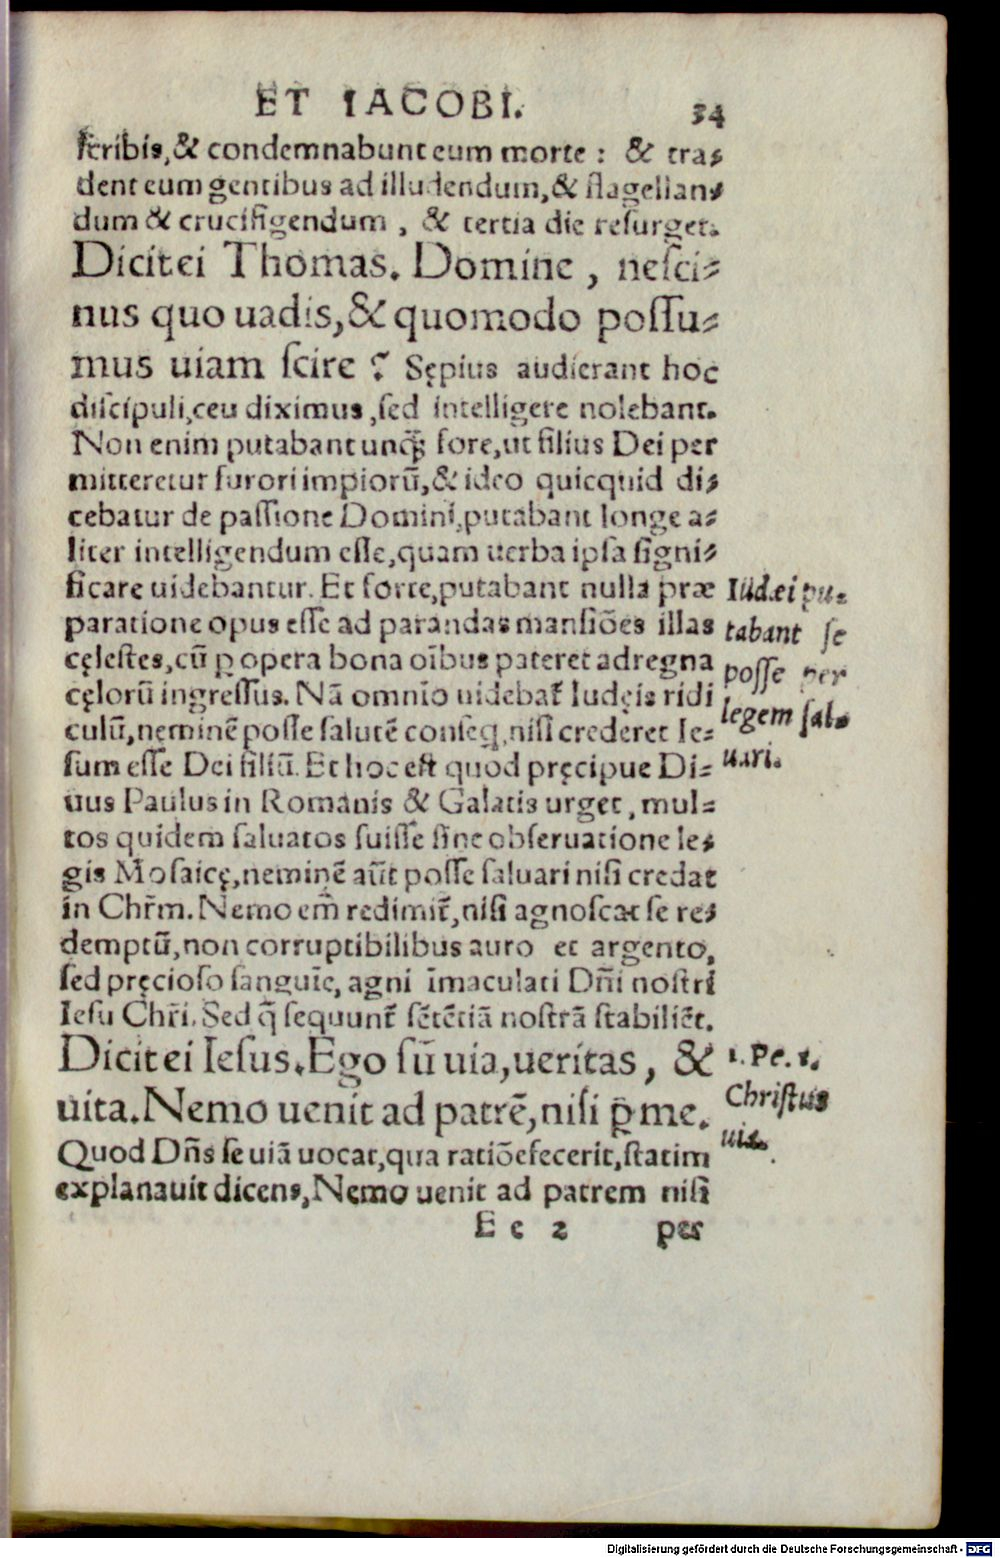 ET IACOBI. 34
ſcribis, & condemnabunt eum morte : & tra⸗
dent eum gentibus ad illudendum, & flagellan⸗
dum & crucifigendum, & tertia die reſurget.
Dicit ei Thomas. Domine, neſci⸗
mus quo uadis, & quomodo poſſu⸗
mus uiam ſcire ? Sępius audierant hoc
diſcipuli, ceu diximus, ſed intelligere nolebant.
Non enim putabant unq̃ fore, ut filius Dei per
mitteretur furori impiorũ, & ideo quicquid di⸗
cebatur de paſſione Domini, putabant longe a⸗
liter intelligendum eſſe, quam uerba ipſa ſigni⸗
ficare uidebantur. Et forte, putabant nulla præ
paratione opus eſſe ad parandas manſiões illas
cęleſtes, cũ ꝑ opera bona oĩbus pateret ad regna
cęlorũ ingreſſus. Nã omnĩo uidebat̃ Iudęis ridi
culũ, neminẽ poſſe ſalutẽ conſeq̃, niſi crederet Ie⸗
ſum eſſe Dei filiũ. Et hoc eſt quod pręcipue Di⸗
uus Paulus in Romanis & Galatis urget, mul⸗
tos quidem ſaluatos fuiſſe ſine obſeruatione le⸗
gis Moſaicę, neminẽ aũt poſſe ſaluari niſi credat
in Chr̃m. Nemo em̃ redimit̃, niſi agnoſcat ſe re⸗
demptũ, non corruptibilibus auro et argento,
ſed pręcioſo ſanguĩe, agni ĩmaculati Dñi noſtri
Ieſu Chr̃i. Sed q̃ ſequunt̃ ſẽtẽtiã noſtrã ſtabiliẽt.
Dicit ei Ieſus. Ego ſũ uia, ueritas, &
uita. Nemo uenit ad patrẽ, niſi ꝑ me.
Quod Dñs ſe uiã uocat, qua ratiõe fecerit, ſtatim
explanauit dicens, Nemo uenit ad patrem niſi
Ee 2 per
Iudæi pu⸗
tabant ſe
poſſe per
legem ſal⸗
uari.
1. Pe. 1.
Chriſtus
uia.
Digitalisierung gefördert durch die Deutsche Forschungsgemeinschaft - DFG